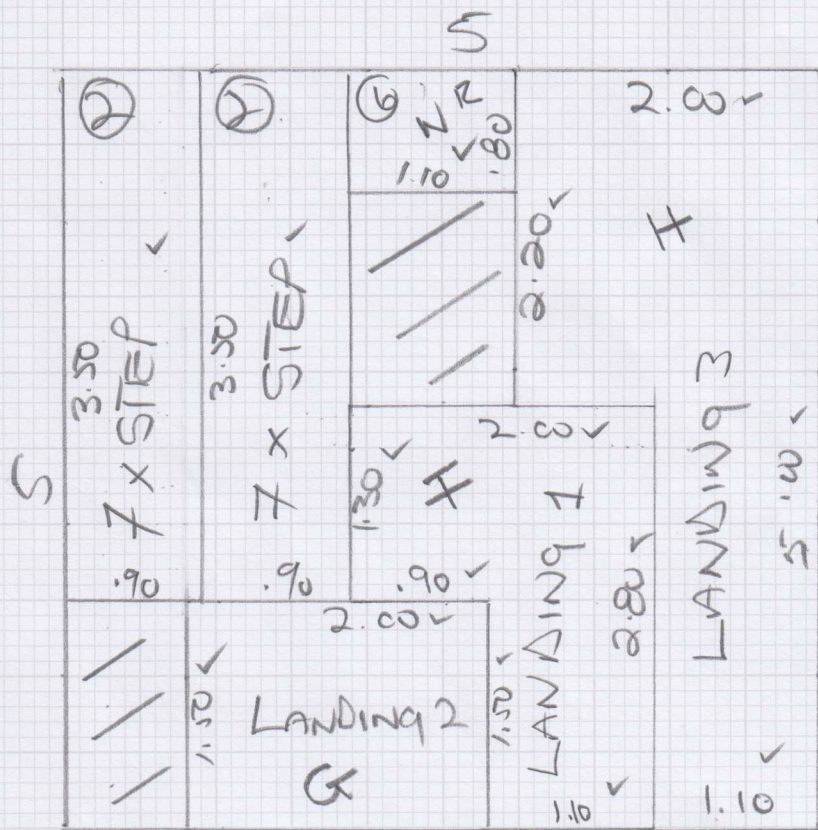 5
5
②
3.50
7 x STEP ✓
.90
②
3.50
7 x STEP ✓
.90
⑥
N R
1.10 ✓
.80
2.20 ✓
2.00 ✓
H
LANDING 3
5.00 ✓
1.10 ✓
2.00 ✓
1.30 ✓
H
.90 ✓
LANDING 1
2.80 ✓
1.10 ✓
2.00 ✓
1.50 ✓
LANDING 2
G
1.50 ✓